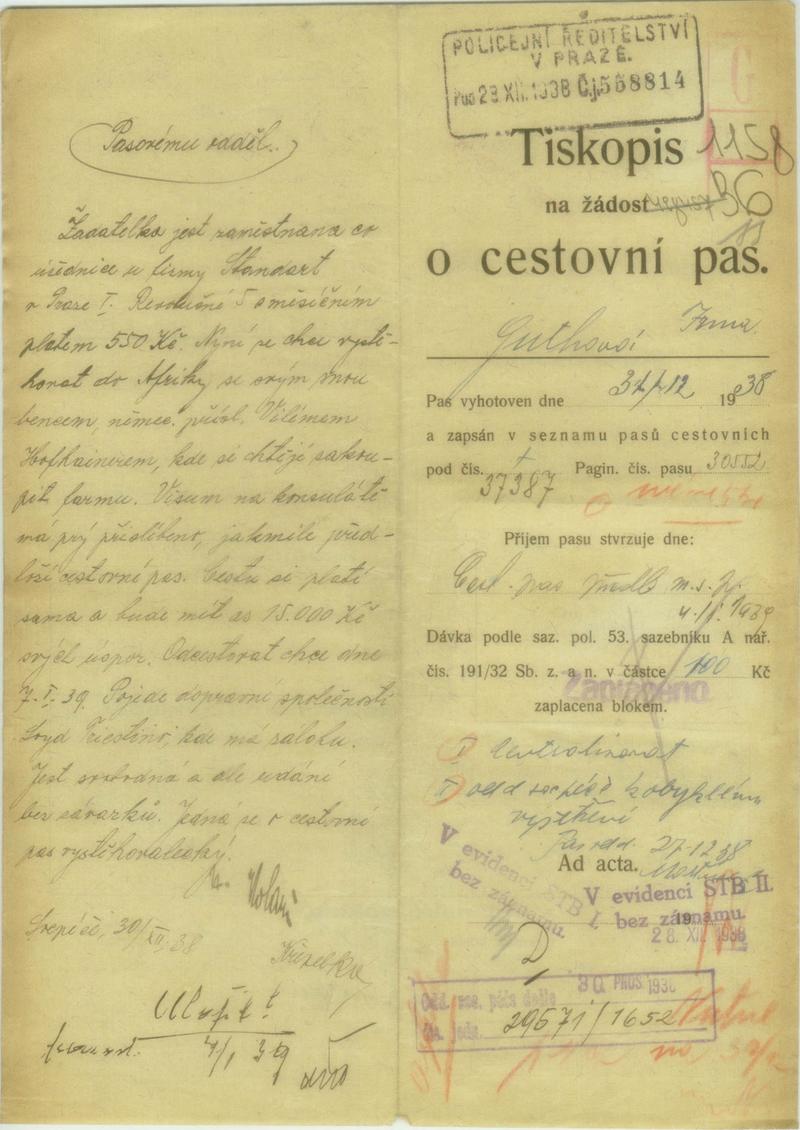 Žadatelka jest zaměstnana co
úřednice u firmy Standart
v Praze I. Revoluční 5 s měsíčním
platem 550 Kč. Nyní se chce vystě-
hovat do Afriky se svým snou
bencem, němec. přísl. Vilémem
Hofhainerem, kde si chtějí zakou-
pit farmu. Visum na konsulátě
má prý přislíbeno, jakmile před-
loží cestovní pas. Cestu si platí
sama a bude mít as 15.000 Kč
svých úspor. Odcestovat chce dne
7-I-39. Pojede dopravní společností
Loyd Triestino, kde má zálohu.
Jest svobodná a dle udání
bez závazků. Jedná se o cestovní
pas vystěhovalecký.
30/XII.38
4/1 39
POLICEJNÍ ŘEDITELSTVÍ
V PRAZE.
28 XII. 1938 Č.j. 568814
G
Tiskopis 1158
na žádost 36
o cestovní pas.
Guthová Irma
Pas vyhotoven dne 31/12 1938
a zapsán v seznamu pasů cestovních
pod čís. 37387 Pagin. čís. pasu 30552
Příjem pasu stvrzuje dne:
Cest. pas
1939
Dávka podle saz. pol. 53. sazebníku A nař.
čís. 191/32 Sb. z. a n. v částce 100 Kč
Zaplaceno
zaplacena blokem.
27-12 38
Ad acta.
V evidenci STB
bez záznamu.
V evidenci STB II.
bez záznamu.
19
28. XII. 1938
D
30 PROS. 1938
29571/1652